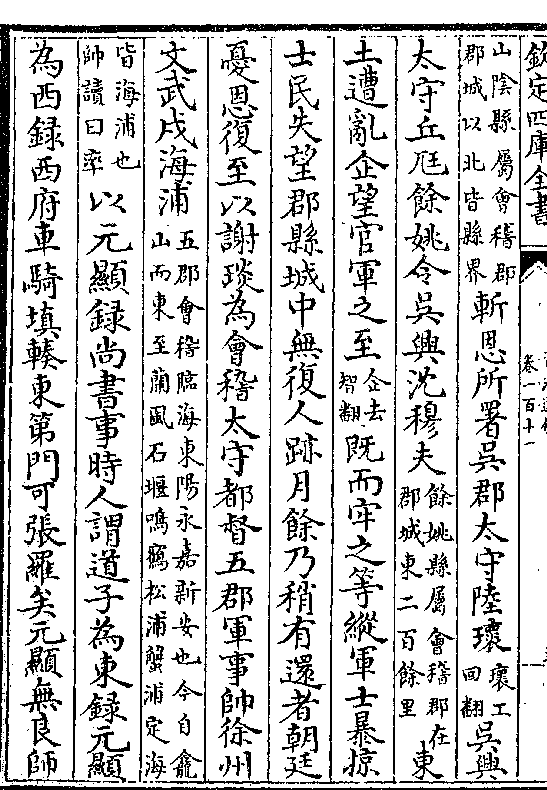 欽定四庫全書
卷一百十一
山陰縣屬會稽郡
郡城以北皆縣界
斬恩所署吳郡太守陸瓌
瓌工
回翻
吳興
太守丘尫餘姚令吳興沈穆夫
餘姚縣屬會稽郡在
郡城東二百餘里
東
土遭亂企望官軍之至
企去
智翻
既而牢之等縱軍士暴掠
士民失望郡縣城中無復人跡月餘乃稍有還者朝廷
憂恩復至以謝琰為會稽太守都督五郡軍事帥徐州
文武戍海浦
五郡會稽臨海東陽永嘉新安也今自龕
山而東至蘭風石堰鳴鶴松浦蟹浦定海
皆海浦也
帥讀曰率
以元顯録尚書事時人謂道子為東録元顯
為西録西府車騎填輳東第門可張羅矣元顯無良師